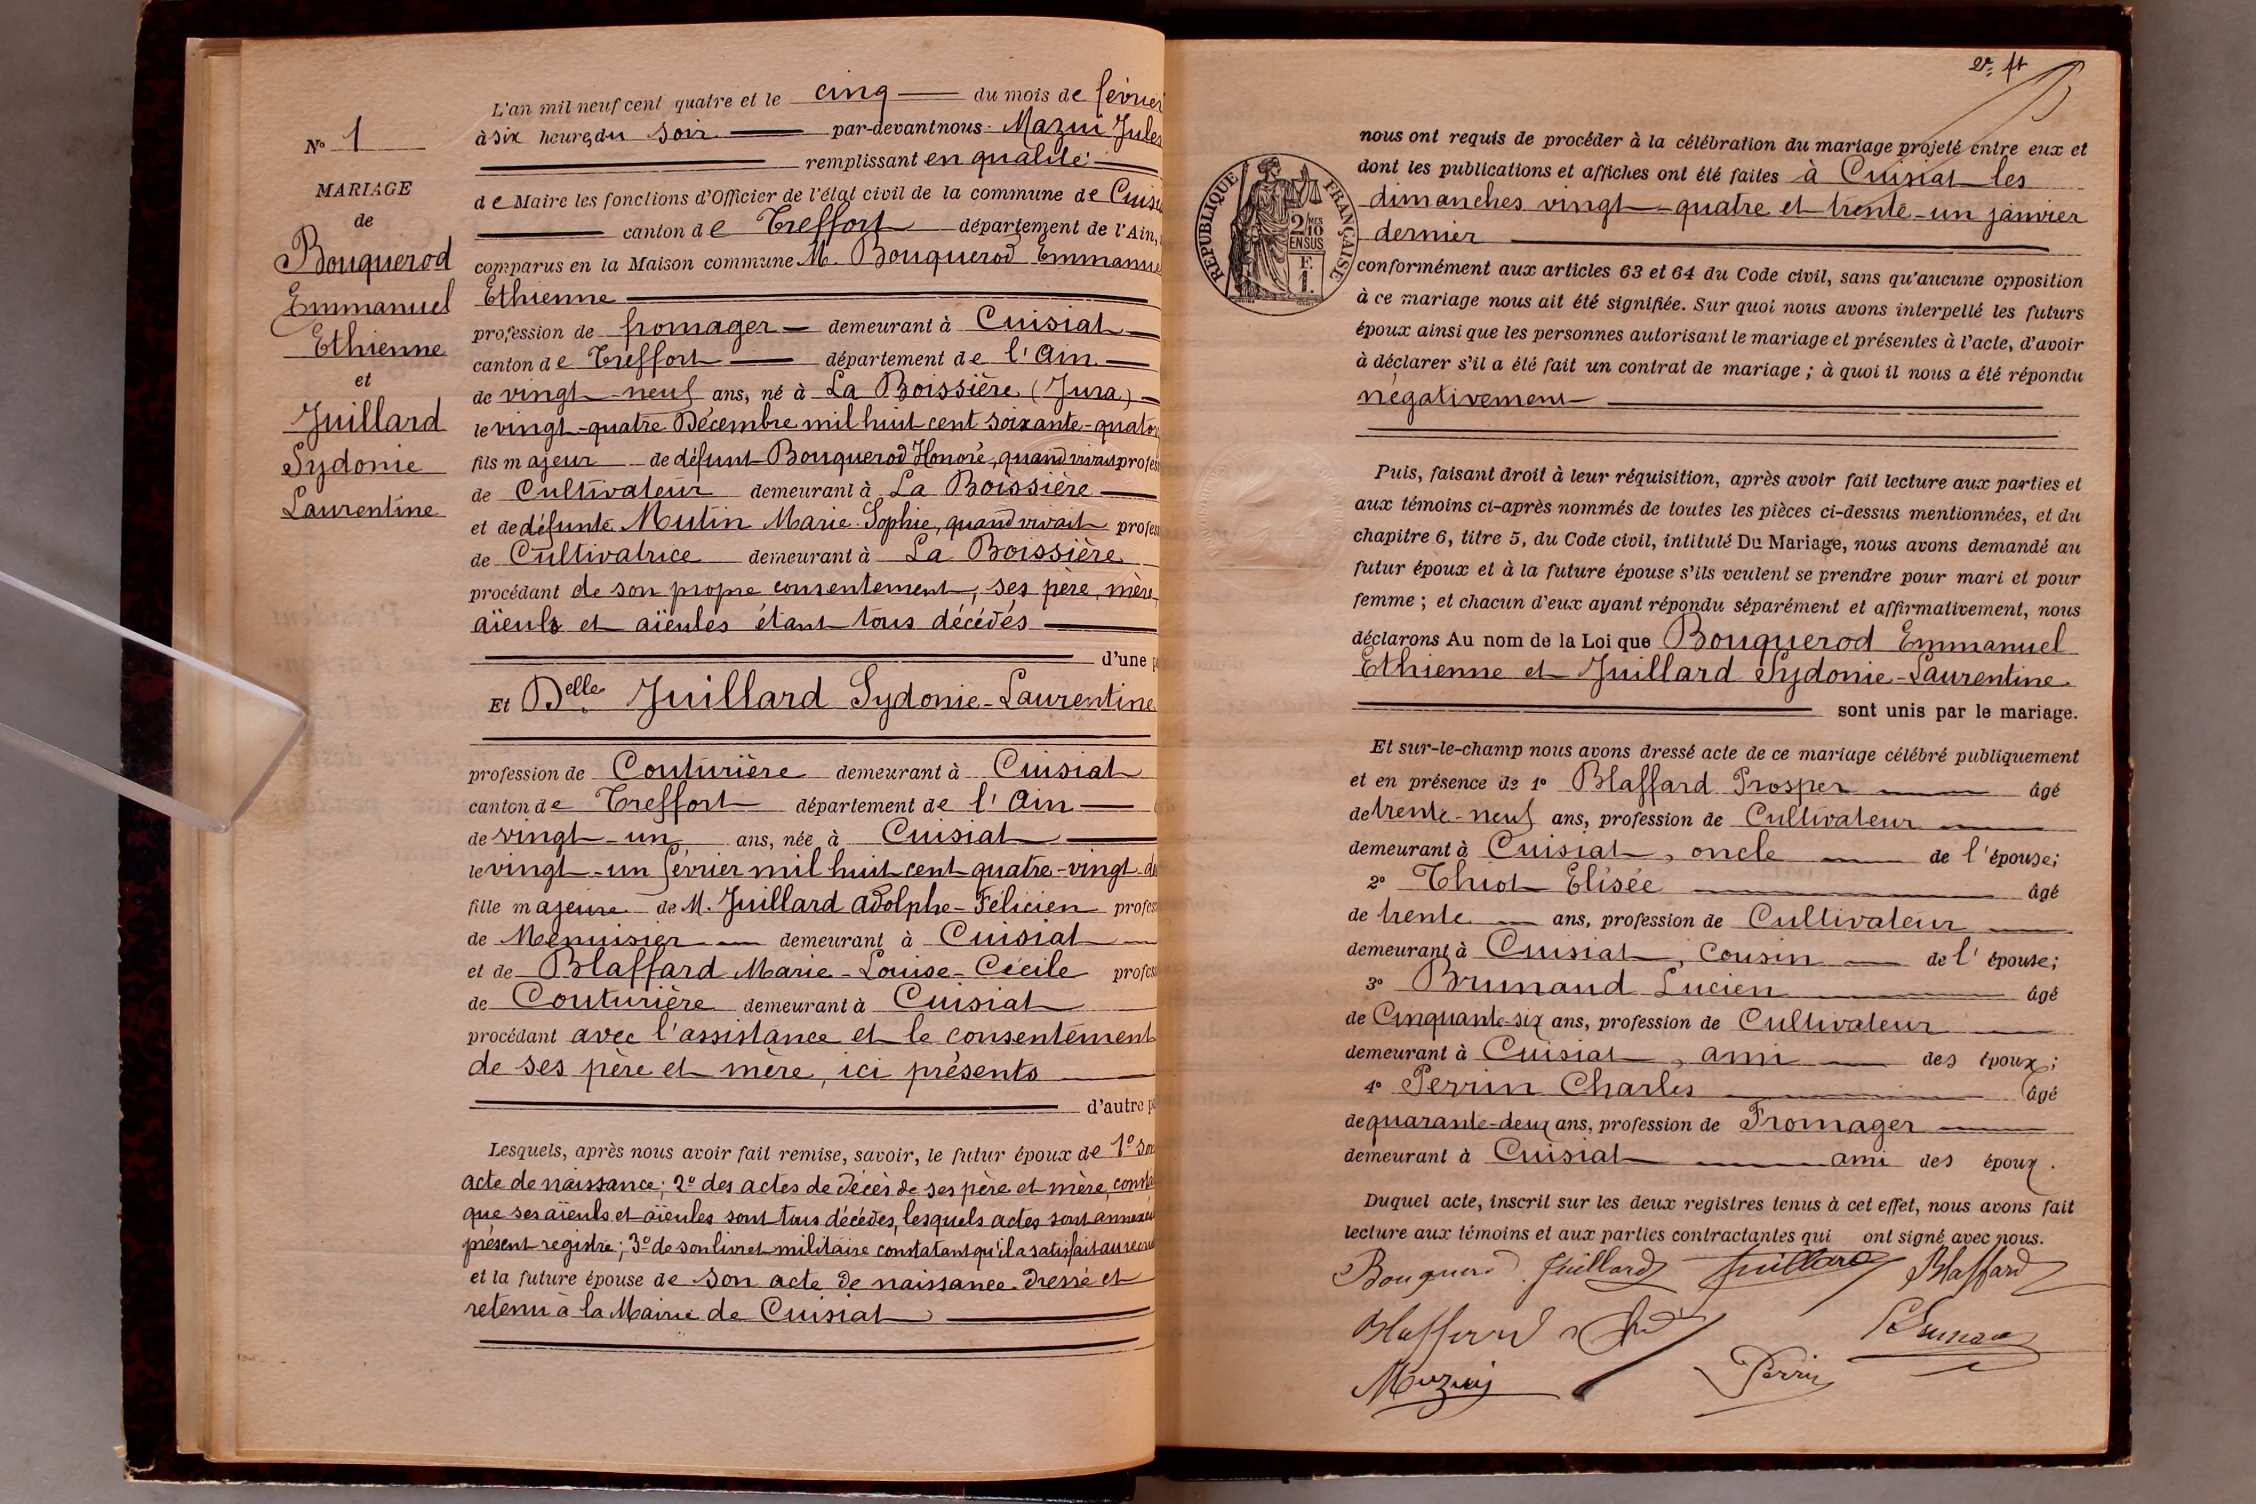 L'an mil neuf cent quatre et le cinq du mois de février
N° 1
à six heures du soir par-devant nous Mazui Jules
remplissant en qualité
MARIAGE
de Maire les fonctions d'Officier de l'état civil de la commune de
de
canton de Treffort département de l'Ain,
Bouquerod
comparus en la Maison commune M. Bouquerod
Emmanuel
Ethienne
Ethienne
profession de fromager demeurant à Cuisiat
et
canton de Treffort département de l'Ain
Juillard
de vingt-neuf ans, né à La Boissière (Jura)
le vingt-quatre Décembre mil huit cent soixante-
Sydonie
fils majeur de défunt Bouquerod Honoré, quand vivait
Laurentine
de Cultivateur demeurant à La Boissière
et de défunte Mutin Marie-Sophie, quand vivait
de Cultivatrice demeurant à La Boissière
procédant de son propre consentement, ses père, mère,
aïeuls et aïeules étant tous décédés
d'une
Et Delle Juillard Sydonie-Laurentine
profession de Couturière demeurant à Cuisiat
canton de Treffort département de l'Ain
de vingt-un ans, née à Cuisiat
le vingt-un février mil huit cent quatre-vingt-
fille majeure de M. Juillard Adolphe-Félicien
de Menuisier demeurant à Cuisiat
et de Blaffard Marie-Louise-Cécile
de Couturière demeurant à Cuisiat
procédant avec l'assistance et le consentement
de ses père et mère, ici présents
d'autre
Lesquels, après nous avoir fait remise, savoir, le futur époux de 1° son
acte de naissance; 2° des actes de décès de ses père et mère,
que ses aïeuls et aïeules sont tous décédés, lesquels actes sont
présent registre; 3° de son livret militaire constatant qu'il a satisfait au
et la future épouse de son acte de naissance dressé et
retenu à la Mairie de Cuisiat
nous ont requis de procéder à la célébration du mariage projeté entre eux et
dont les publications et affiches ont été faites à Cuisiat les
dimanches vingt-quatre et trente-un janvier
dernier
RÉPUBLIQUE FRANÇAISE
2/10 EN SUS
F. 1.
conformément aux articles 63 et 64 du Code civil, sans qu'aucune opposition
à ce mariage nous ait été signifiée. Sur quoi nous avons interpellé les futurs
époux ainsi que les personnes autorisant le mariage et présentes à l'acte, d'avoir
à déclarer s'il a été fait un contrat de mariage ; à quoi il nous a été répondu
négativement
Puis, faisant droit à leur réquisition, après avoir fait lecture aux parties et
aux témoins ci-après nommés de toutes les pièces ci-dessus mentionnées, et du
chapitre 6, titre 5, du Code civil, intitulé Du Mariage, nous avons demandé au
futur époux et à la future épouse s'ils veulent se prendre pour mari et pour
femme ; et chacun d'eux ayant répondu séparément et affirmativement, nous
déclarons Au nom de la Loi que Bouquerod Emmanuel
Ethienne et Juillard Sydonie-Laurentine
sont unis par le mariage.
Et sur-le-champ nous avons dressé acte de ce mariage célébré publiquement
et en présence de 1° Blaffard Prosper âgé
de trente-neuf ans, profession de Cultivateur
demeurant à Cuisiat, oncle de l'épouse;
2° Thiot Elisée âgé
de trente ans, profession de Cultivateur
demeurant à Cuisiat, cousin de l'épouse;
3° Brunaud Lucien âgé
de Cinquante-six ans, profession de Cultivateur
demeurant à Cuisiat, ami des époux;
4° Perrin Charles âgé
de quarante-deux ans, profession de Fromager
demeurant à Cuisiat ami des époux.
Duquel acte, inscrit sur les deux registres tenus à cet effet, nous avons fait
lecture aux témoins et aux parties contractantes qui ont signé avec nous.
Bouquerod Juillard Juillard Blaffard
Blaffard
Perrin